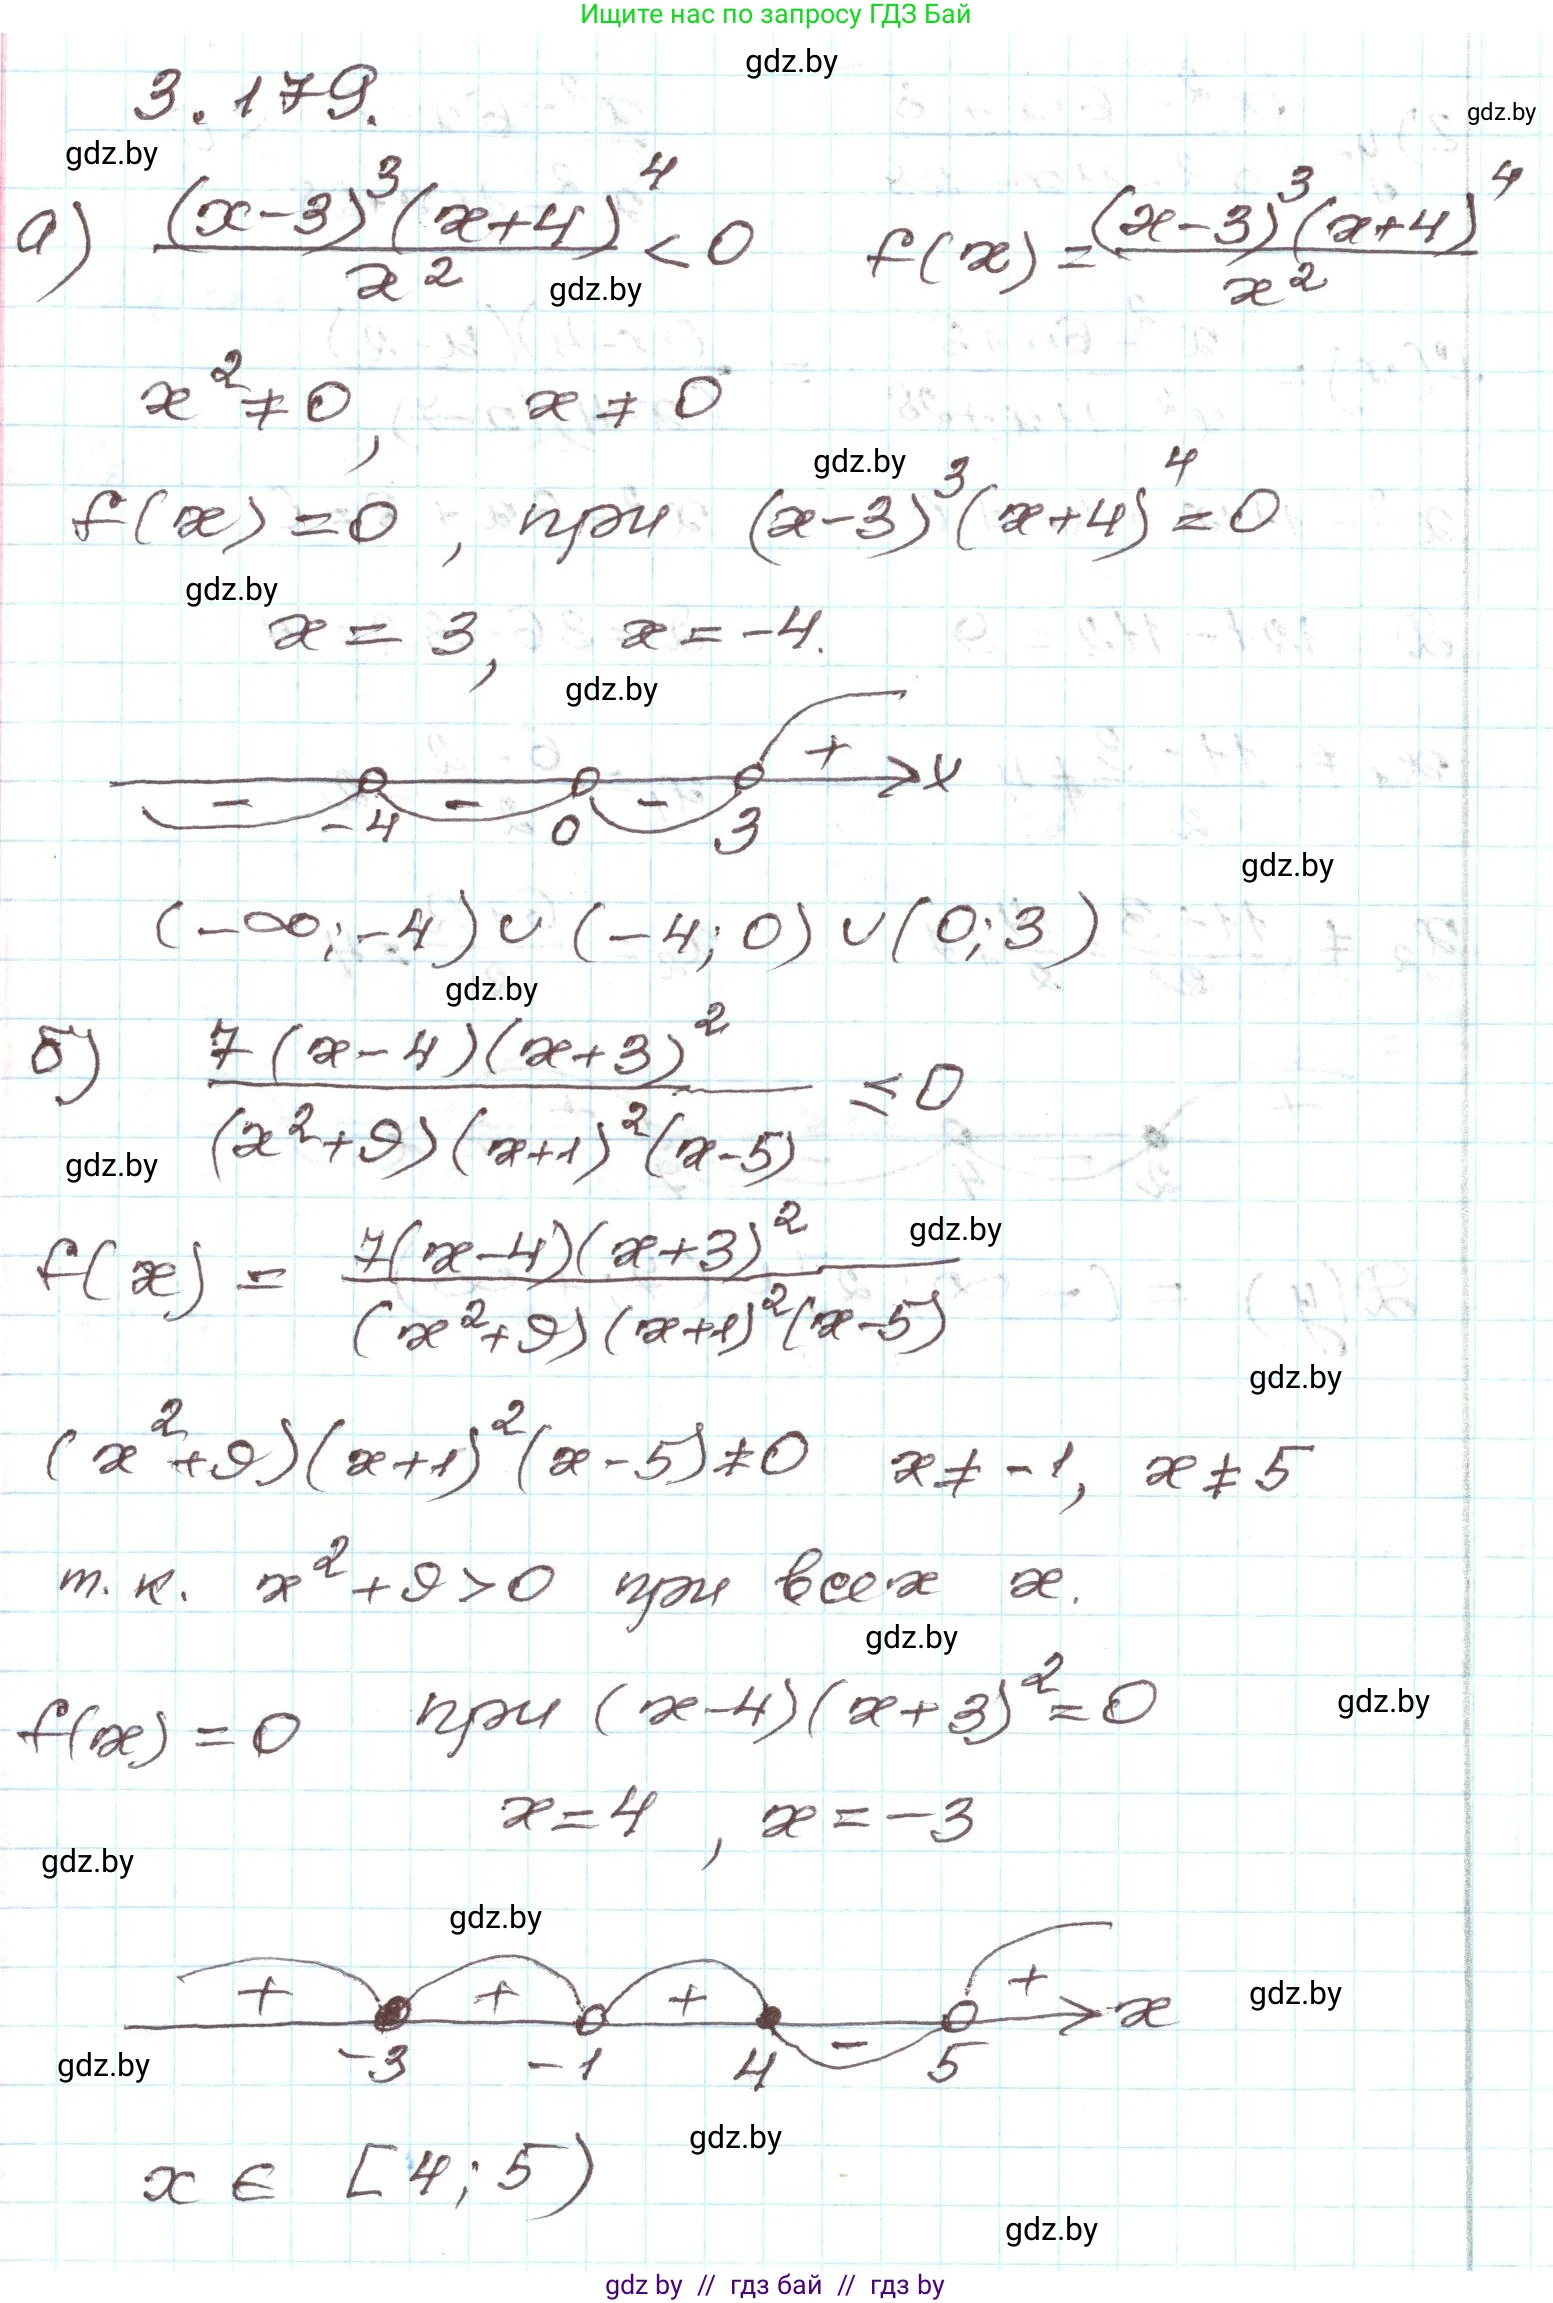 Ищите нас по запросу ГДЗ Бай
gdz.by
3.179.
gdz.by
gdz.by
а) (x-3)³(x+4)⁴ / x² < 0    f(x) = (x-3)³(x+4)⁴ / x²
gdz.by
x² ≠ 0, x ≠ 0
gdz.by
f(x) = 0, при (x-3)³(x+4)⁴ = 0
gdz.by
x = 3, x = -4.
gdz.by
+
- - - x
-4 0 3
gdz.by
(-∞; -4) ∪ (-4; 0) ∪ (0; 3)
gdz.by
б) 7(x-4)(x+3)² / (x²+9)(x+1)²(x-5) ≤ 0
gdz.by
gdz.by
f(x) = 7(x-4)(x+3)² / (x²+9)(x+1)²(x-5)
gdz.by
(x²+9)(x+1)²(x-5) ≠ 0 x ≠ -1, x ≠ 5
т.к. x²+9 > 0 при всех x.
gdz.by
f(x) = 0 при (x-4)(x+3)² = 0
gdz.by
x = 4, x = -3
gdz.by
gdz.by
+ + + - + x
gdz.by
-3 -1 4 5
gdz.by
gdz.by
x ∈ [4; 5)
gdz.by
gdz by // гдз бай // гдз by